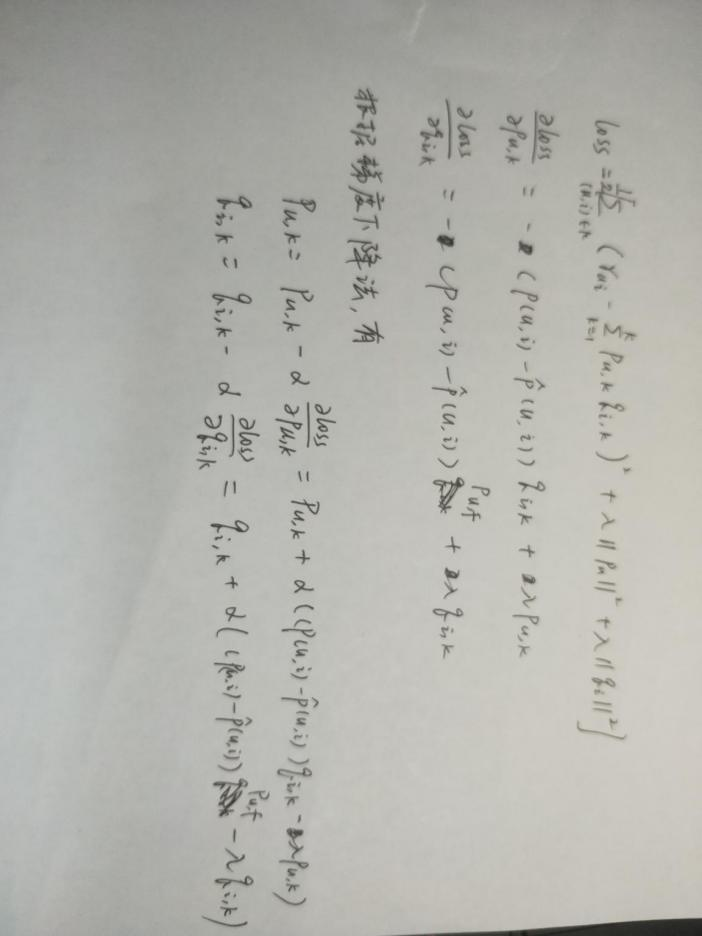 loss = ½ Σ_{(u,i)∈K} (r_{ui} - Σ_{k=1}^{K} p_{u,k} q_{i,k})² + λ||p_u||² + λ||q_i||²]
∂loss/∂p_{u,k} = - (p(u,i) - p̂(u,i)) q_{i,k} + λ p_{u,k}
∂loss/∂q_{i,k} = - (p(u,i) - p̂(u,i)) p_{u,f} + λ q_{i,k}
根据梯度下降法,有
p_{u,k} = p_{u,k} - α ∂loss/∂p_{u,k} = p_{u,k} + α((p(u,i) - p̂(u,i)) q_{i,k} - λ p_{u,k})
q_{i,k} = q_{i,k} - α ∂loss/∂q_{i,k} = q_{i,k} + α((p(u,i) - p̂(u,i)) p_{u,f} - λ q_{i,k})